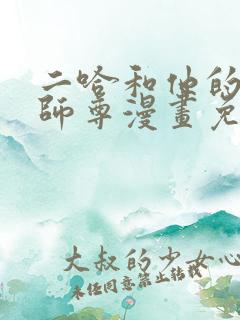 二哈和他的
師尊漫畫免
大叔的少女心
未经同意禁止转载